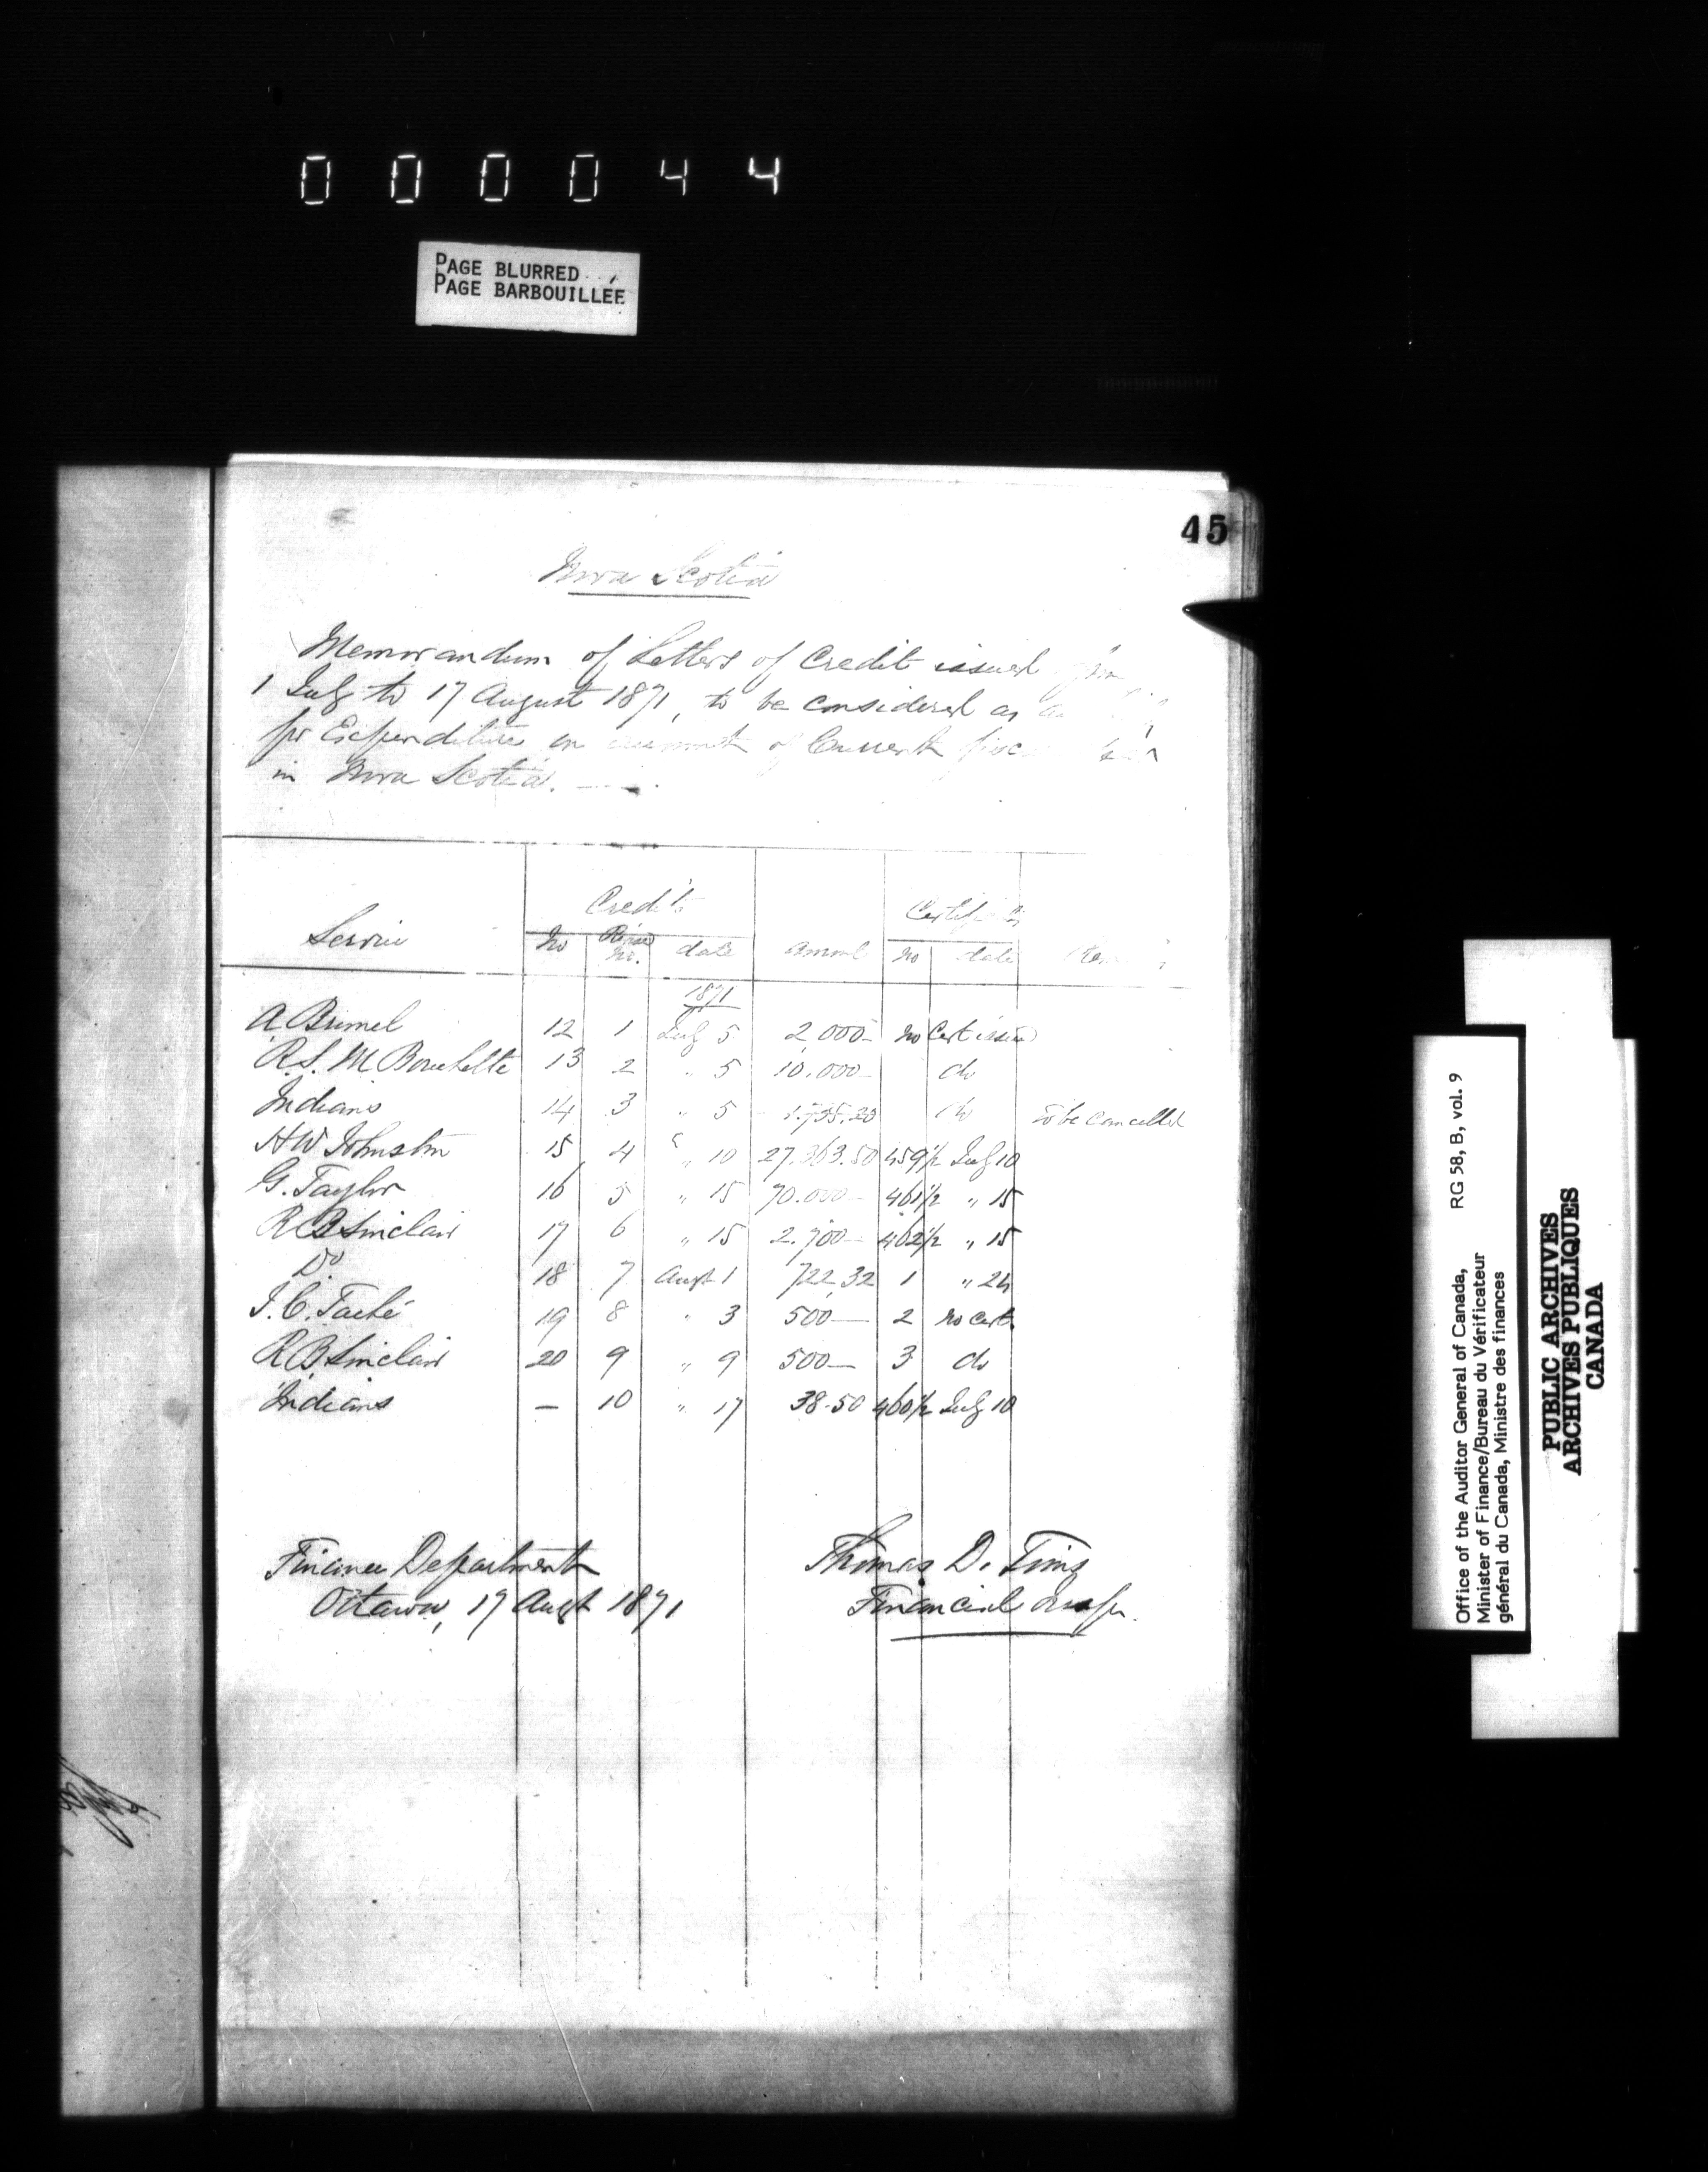 000044
PAGE BLURRED
PAGE BARBOUILLÉE
45
Nova Scotia
Memorandum of Letters of Credit issued from
1 July to 17 August 1871, to be considered as
for Expenditure on account of Current
in Nova Scotia.
Service Credits Amount Certificates
No No. date No date
1871
A. Brunel 12 1 July 5 2,000– No Cert issued
R.S.M. Bouchette 13 2 " 5 10.000– do
Indians 14 3 " 5 do To be Cancelled
H W Johnston 15 4 " 10 27.363.50 459½ July 10
G. Taylor 16 5 " 15 70.000– 461½ " 15
R B Sinclair 17 6 " 15 2.700– 462½ " 15
Do 18 7 Augt 1 722.32 1 " 24
J. C. Taché 19 8 " 3 500— 2 No Cert.
R B Sinclair 20 9 " 9 500— 3 do
Indians — 10 " 17 38.50 460½ July 10
Finance Department
Ottawa, 17 Augt 1871
Thomas D. Tims
Financial Inspr.
Office of the Auditor General of Canada, RG 58, B, vol. 9
Minister of Finance/Bureau du Vérificateur
général du Canada, Ministre des finances
PUBLIC ARCHIVES
ARCHIVES PUBLIQUES
CANADA